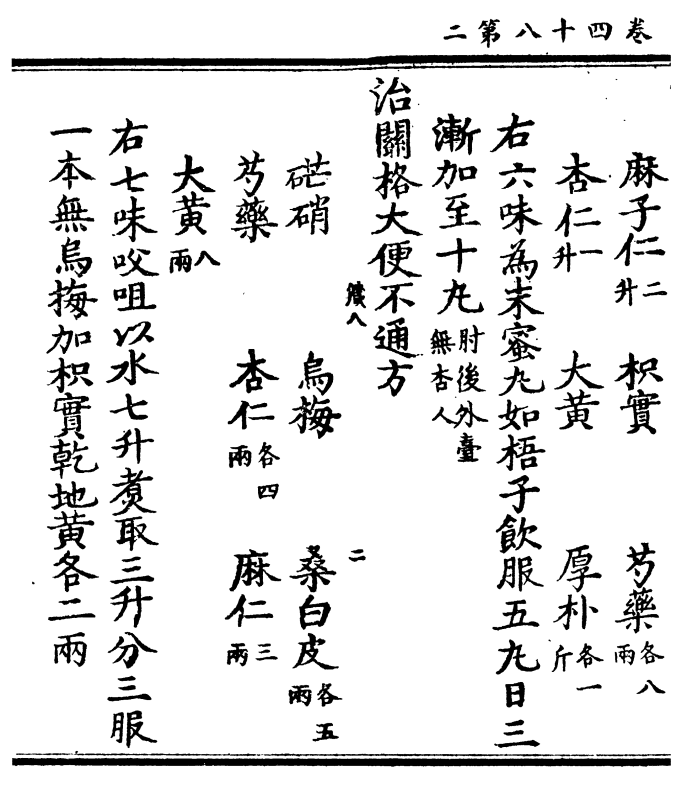 卷四十八第二
麻子仁二升 枳實 芍藥各八兩
杏仁一升 大黃 厚朴各一斤
右六味為末蜜丸如梧子飲服五丸日三
漸加至十丸肘後外臺無杏人
治關格大便不通方
芒硝 烏梅 桑白皮各五兩
芍藥 杏仁各四兩 麻仁三兩
大黃八兩
右七味㕮咀以水七升煑取三升分三服
一本無烏梅加枳實乾地黃各二兩
二